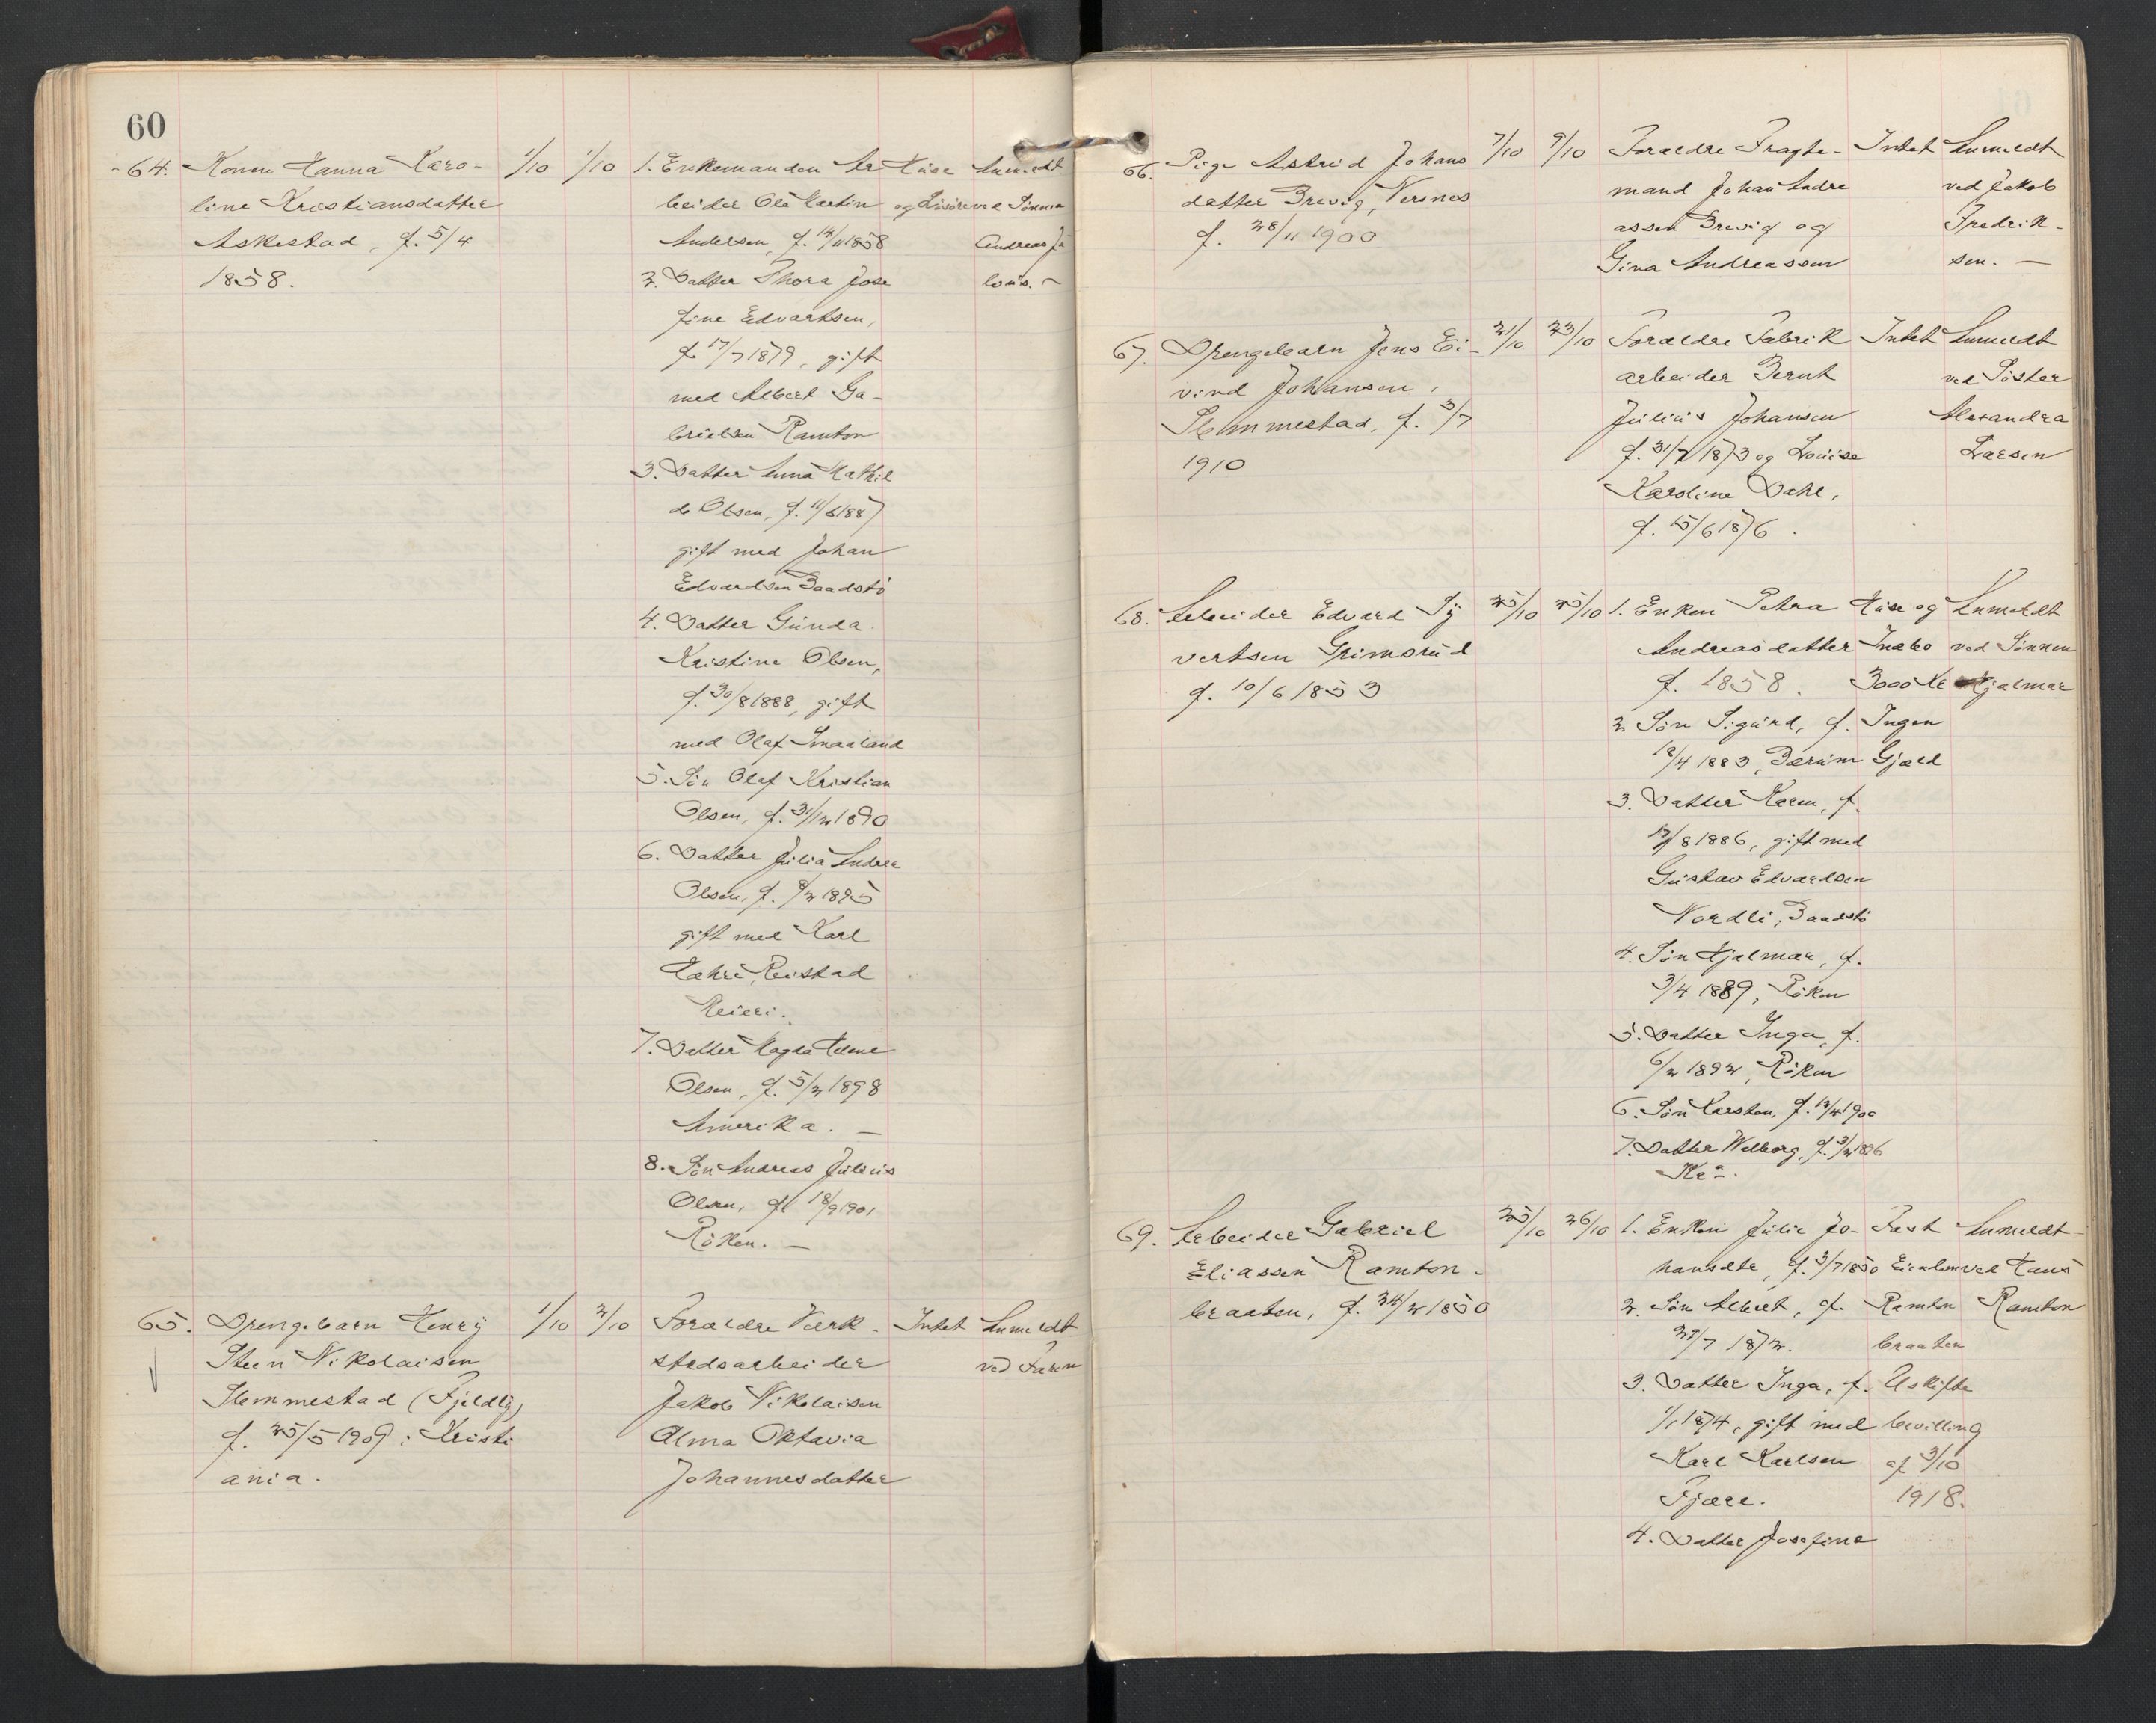 60
64. Konen Hanna Karo-
line Kristiansdatter
Askestad, f. 5/4
1858.
1/10
1/10
1. Enkemanden Ar
beider Ole Martin
Andersen, f. 14/11 1858
2. Datter Thora Jose
fine Edvartsen,
f. 17/7 1879, gift
med Albert Ga-
brielsen Ramton
3. Datter Anna Mathil
de Olsen, f. 11/6 1887
gift med Johan
Edvardsen Baadstø
4. Datter Gunda
Kristine Olsen,
f. 30/8 1888, gift
med Olaf Smaaland
5. Søn Olaf Kristian
Olsen, f. 31/12 1890
6. Datter Julia Andrea
Olsen, f. 8/2 1895
gift med Karl
Reistad
Meieri.
7. Datter Magda Helene
Olsen, f. 5/2 1898
Amerika. —
8. Søn Andreas Julius
Olsen, f. 18/9 1901
Røken. —
Huse
og Løsøre
Anmeldt
ved Sønnen
Andreas Ju
lius. —
65. Drengebarn Henry
Steen Nikolaisen
Slemmestad (Fjeldly)
f. 25/5 1909 i Kristi
ania.
1/10
2/10
Forældre Værk-
stedsarbeider
Jakob Nikolaisen
Alma Oktavia
Johannesdatter
Intet
Anmeldt
ved Faren
66. Pige Astrid Johans
datter Brevig, Nersnes
f. 28/11 1900
7/10
9/10
Forældre Fragte-
mand Johan Andre
assen Brevig og
Gina Andreassen
Intet
Anmeldt
ved Jakob
Fredrik-
sen. —
67. Drengebarn Jens Ei-
vind Johansen,
Slemmestad, f. 3/7
1910
21/10
23/10
Forældre Fabrik
arbeider Bernt
Julius Johansen
f. 31/7 1873 og Louise
Karoline Dahl,
f. 15/6 1876.
Intet
Anmeldt
ved Søster
Alexandra
Larsen
68. Arbeider Edvard Sy
vertsen Grimsrud
f. 10/6 1853
25/10
25/10
1. Enken Petra
Andreasdatter
f. 1858.
2 Søn Sigurd, f.
18/4 1883, Bærum
3. Datter Karen, f.
17/8 1886, gift med
Gustav Edvardsen
Nordli, Baadstø
4. Søn Hjalmar, f.
3/4 1889, Røken
5. Datter Inga, f.
6/2 1892, Røken
6. Søn Karsten, f. 12/4 1900
7. Datter Walborg, f. 3/2 1896
Kra.
Huse og
Indbo
3000 Kr
Ingen
Gjæld
Anmeldt
ved Sønnen
Hjalmar
69. Arbeider Gabriel
Eliassen Ramton-
braaten, f. 24/2 1850
25/10
26/10
1. Enken Julie Jo-
hansdtr, f. 3/7 1850
2. Søn Albert, f.
29/7 1872.
3. Datter Inga, f.
1/1 1874, gift med
Karl Karlsen
Fjære.
4. Datter Josefine
Fast
Eiendom
Ramton
braaten
Uskifte
bevilling
af 3/10
1918.
Anmeldt
ved Hans
Ramton